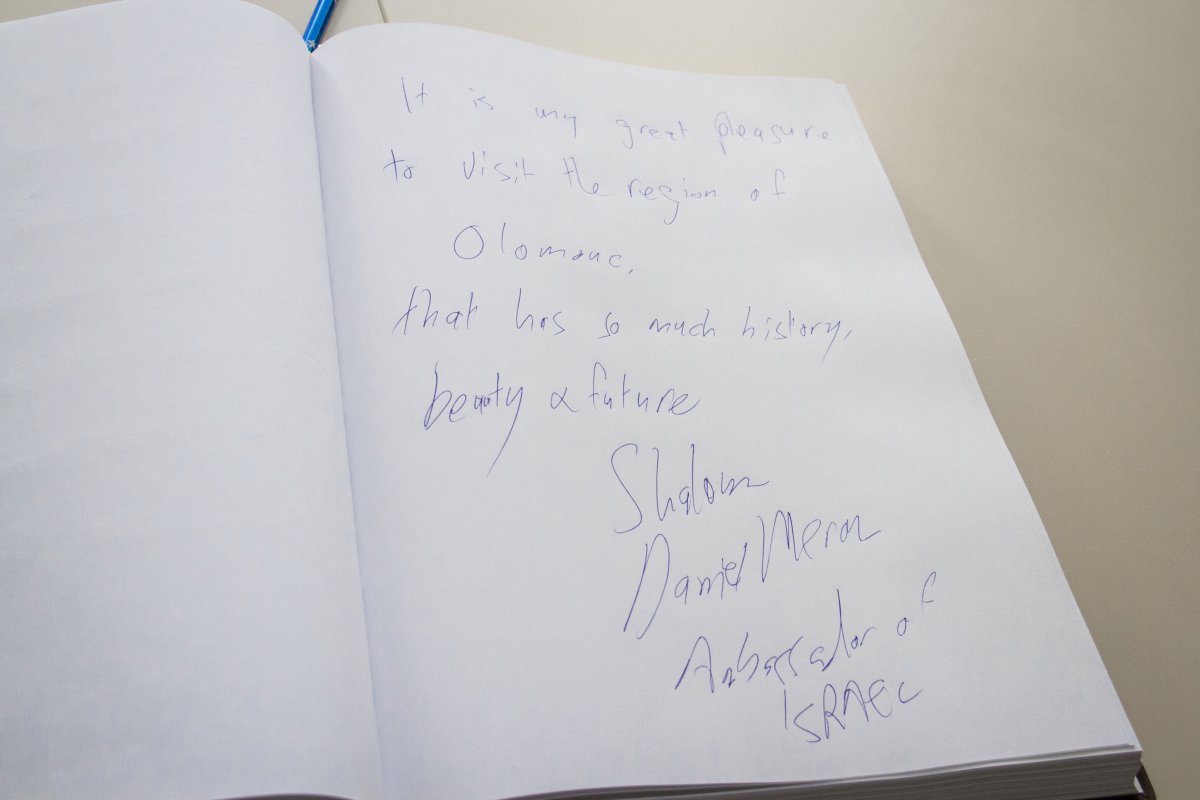 It is my great pleasure
to visit the region of
Olomouc,
that has so much history,
beauty & future
Shalom
Daniel Meron
Ambassador of
ISRAEL